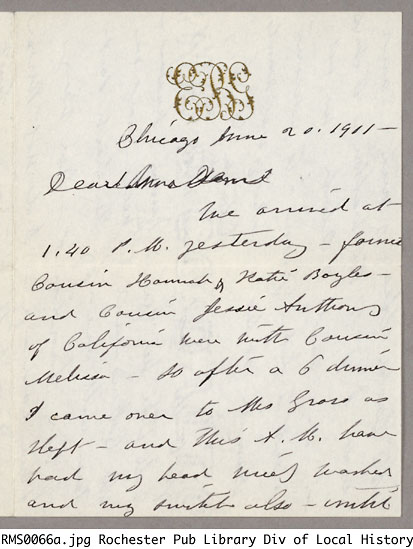 Chicago June 20. 1911 -
Dear
We arrived at
1.40 P.M. yesterday - found
Cousin Hannah & Katie Boyles -
and Cousin Jessie Anthony
of California were with Cousin
Melissa - So after a 6 dinner
I came over to Mrs Gross as
slept - and this A.M. have
had my head nicely washed
and my switch also - until
RMS0066a.jpg Rochester Pub Library Div of Local History